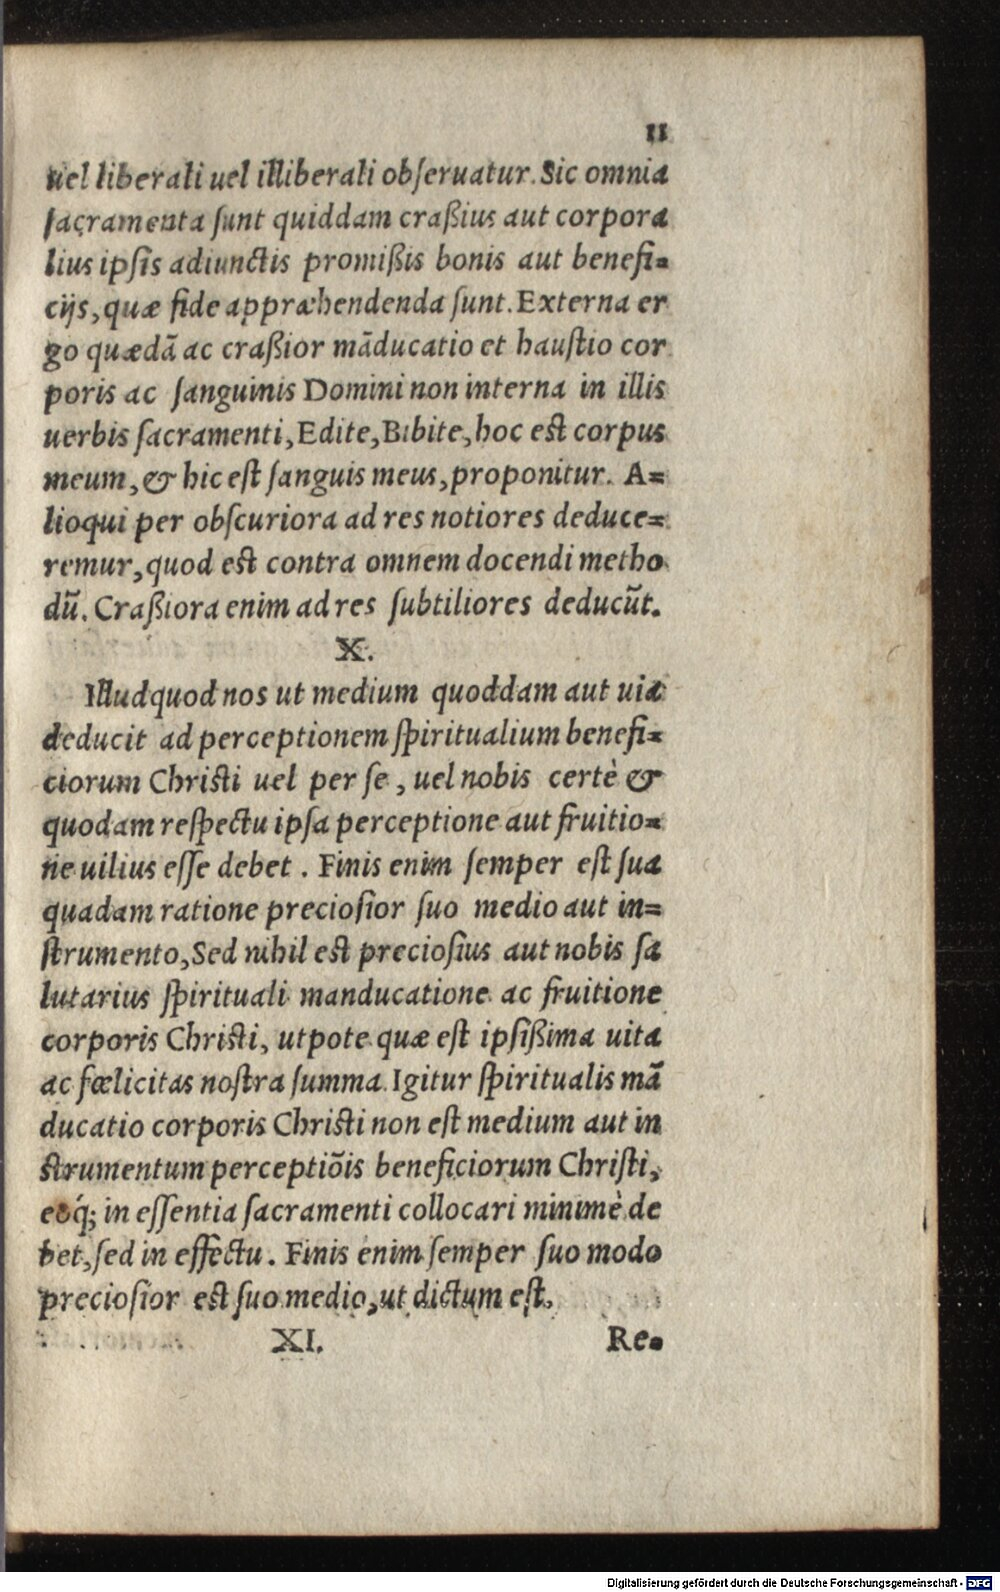 11
uel liberali uel illiberali obſeruatur. Sic omnia
ſacramenta ſunt quiddam craßius aut corpora
lius ipſis adiunctis promißis bonis aut benefi=
cijs, quæ fide appræhendenda ſunt. Externa er
go quædā ac craßior māducatio et hauſtio cor
poris ac ſanguinis Domini non interna in illis
uerbis ſacramenti, Edite, Bibite, hoc eſt corpus
meum, & hic eſt ſanguis meus, proponitur. A=
lioqui per obſcuriora ad res notiores deduce=
remur, quod eſt contra omnem docendi metho
dū. Craßiora enim ad res ſubtiliores deducūt.
X.
Illud quod nos ut medium quoddam aut uia
deducit ad perceptionem ſpiritualium benefi=
ciorum Chriſti uel per ſe, uel nobis certè &
quodam reſpectu ipſa perceptione aut fruitio=
ne uilius eſſe debet. Finis enim ſemper eſt ſua
quadam ratione precioſior ſuo medio aut in=
ſtrumento, Sed nihil eſt precioſius aut nobis ſa
lutarius ſpirituali manducatione ac fruitione
corporis Chriſti, utpote quæ eſt ipſißima uita
ac fœlicitas noſtra ſumma. Igitur ſpiritualis mā
ducatio corporis Chriſti non eſt medium aut in
ſtrumentum perceptiōis beneficiorum Chriſti,
eoq́; in eſſentia ſacramenti collocari minimè de
bet, ſed in effectu. Finis enim ſemper ſuo modo
precioſior eſt ſuo medio, ut dictum eſt.
XI. Re=
Digitalisierung gefördert durch die Deutsche Forschungsgemeinschaft - DFG